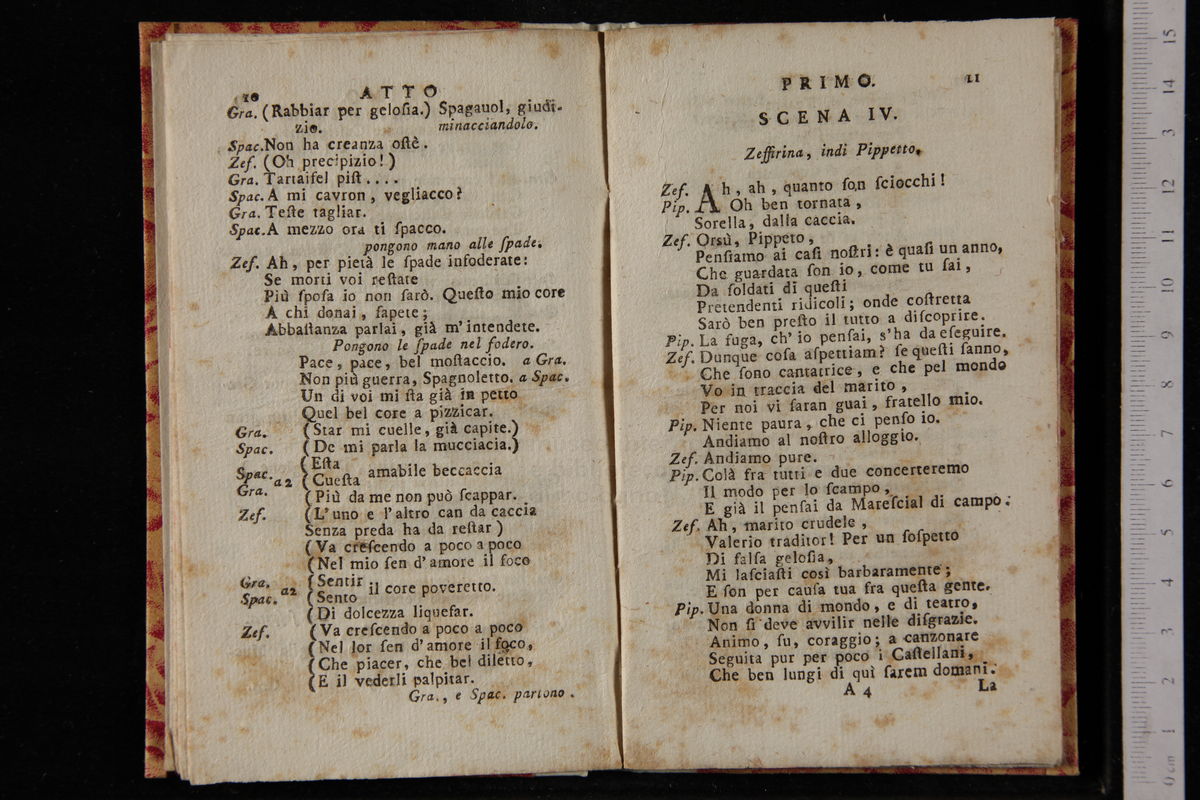 10 ATTO
Gra. (Rabbiar per geloſia.) Spagauol, giudi-
zio. minacciandolo.
Spac. Non ha creanza oſtè.
Zef. (Oh precipizio!)
Gra. Tartaifel piſt ....
Spac. A mi cavron, vegliacco?
Gra. Teſte tagliar.
Spac. A mezzo ora ti ſpacco.
pongono mano alle ſpade.
Zef. Ah, per pietà le ſpade infoderate:
Se morti voi reſtate
Più ſpoſa io non ſarò. Queſto mio core
A chi donai, ſapete;
Abbaſtanza parlai, già m'intendete.
Pongono le ſpade nel fodero.
Pace, pace, bel moſtaccio. a Gra.
Non più guerra, Spagnoletto. a Spac.
Un di voi mi ſta già in petto
Quel bel core a pizzicar.
Gra. (Star mi cuelle, già capite.)
Spac. (De mi parla la mucciacia.)
Spac. a2 (Eſta
Gra. (Cueſta amabile beccaccia
(Più da me non può ſcappar.
Zef. (L'uno e l'altro can da caccia
Senza preda ha da reſtar)
(Va creſcendo a poco a poco
(Nel mio ſen d'amore il foco
Gra. a2 (Sentir
Spac. (Sento il core poveretto.
(Di dolcezza liquefar.
Zef. (Va creſcendo a poco a poco
(Nel lor ſen d'amore il foco,
(Che piacer, che bel diletto,
(E il vederli palpitar.
Gra., e Spac. partono.
PRIMO. 11
SCENA IV.
Zeffirina, indi Pippetto.
Zef. Ah, ah, quanto ſon ſciocchi!
Pip. Oh ben tornata,
Sorella, dalla caccia.
Zef. Orsù, Pippeto,
Penſiamo ai caſi noſtri: è quaſi un anno,
Che guardata ſon io, come tu ſai,
Da ſoldati di queſti
Pretendenti ridicoli; onde coſtretta
Sarò ben preſto il tutto a diſcoprire.
Pip. La fuga, ch'io penſai, s'ha da eſeguire.
Zef. Dunque coſa aſpettiam? ſe queſti ſanno,
Che ſono cantatrice, e che pel mondo
Vo in traccia del marito,
Per noi vi ſaran guai, fratello mio.
Pip. Niente paura, che ci penſo io.
Andiamo al noſtro alloggio.
Zef. Andiamo pure.
Pip. Colà fra tutti e due concerteremo
Il modo per lo ſcampo,
E già il penſai da Mareſcial di campo.
Zef. Ah, marito crudele,
Valerio traditor! Per un ſoſpetto
Di falſa geloſia,
Mi laſciaſti così barbaramente;
E ſon per cauſa tua fra queſta gente.
Pip. Una donna di mondo, e di teatro,
Non ſi deve avvilir nelle diſgrazie.
Animo, ſu, coraggio; a canzonare
Seguita pur per poco i Caſtellani,
Che ben lungi di quì ſarem domani.
A 4 La
0 cm 1 2 3 4 5 6 7 8 9 10 11 12 13 14 15